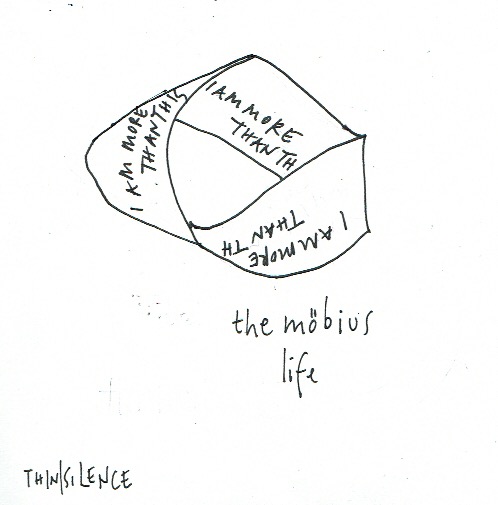 I AM MORE
THAN THIS
I AM MORE
THAN TH
I AM MORE
THAN TH
the möbius
life
THIN|SILENCE